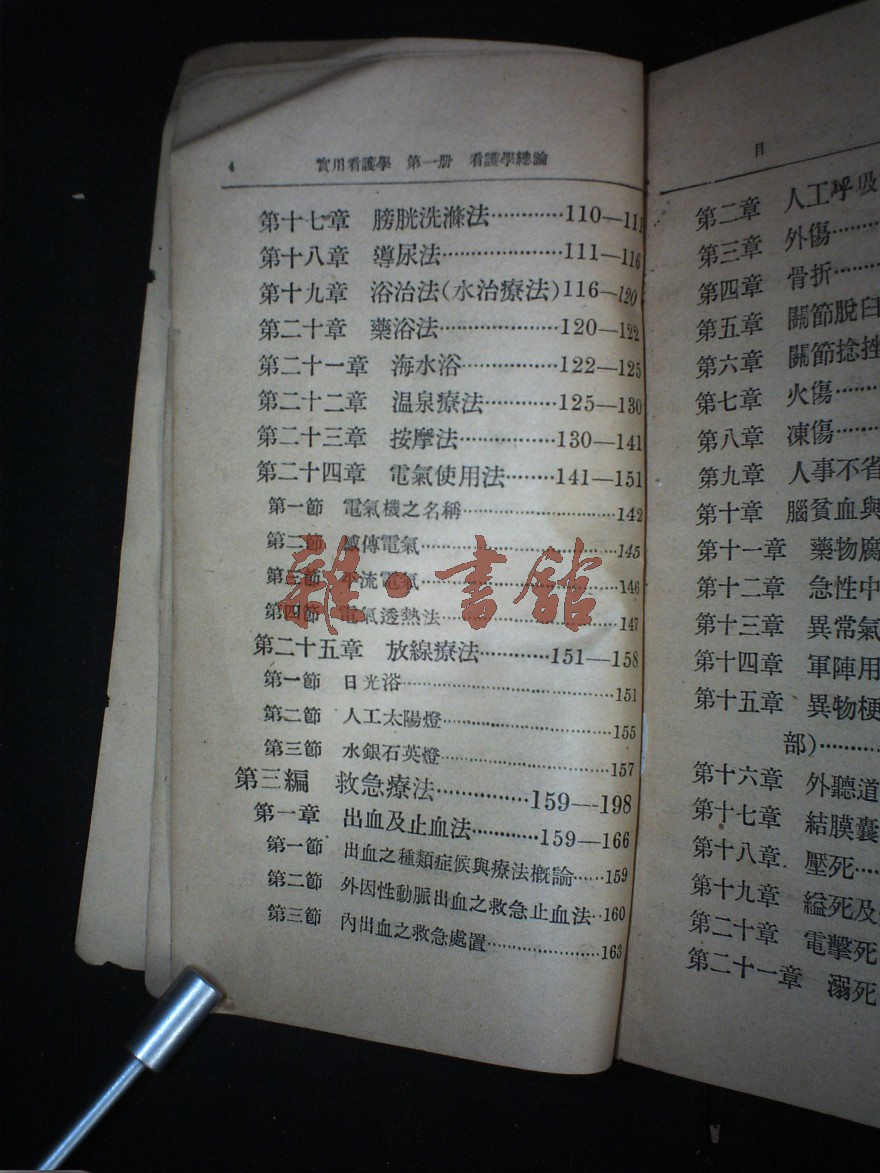 4 實用看護學 第一册 看護學總論
第十七章 膀胱洗滌法…………110—111
第十八章 導尿法…………………111—116
第十九章 浴治法(水治療法)116—120
第二十章 藥浴法…………………120—122
第二十一章 海水浴……………122—125
第二十二章 温泉療法…………125—130
第二十三章 按摩法……………130—141
第二十四章 電氣使用法………141—151
第一節 電氣機之名稱……………………142
第二節 感傳電氣…………………………145
第三節 平流電氣…………………………146
第四節 電氣透熱法………………………147
第二十五章 放線療法…………151—158
第一節 日光浴……………………………151
第二節 人工太陽燈………………………155
第三節 水銀石英燈………………………157
第三編 救急療法……………159—198
第一章 出血及止血法…………159—166
第一節 出血之種類症候與療法概論……159
第二節 外因性動脈出血之救急止血法…160
第三節 內出血之救急處置………………163
雜·書館
目
第二章 人工呼吸
第三章 外傷………
第四章 骨折………
第五章 關節脫臼
第六章 關節捻挫
第七章 火傷………
第八章 凍傷………
第九章 人事不省
第十章 腦貧血與
第十一章 藥物腐
第十二章 急性中
第十三章 異常氣
第十四章 軍陣用
第十五章 異物梗
部)………
第十六章 外聽道
第十七章 結膜囊
第十八章 壓死……
第十九章 縊死及
第二十章 電擊死
第二十一章 溺死